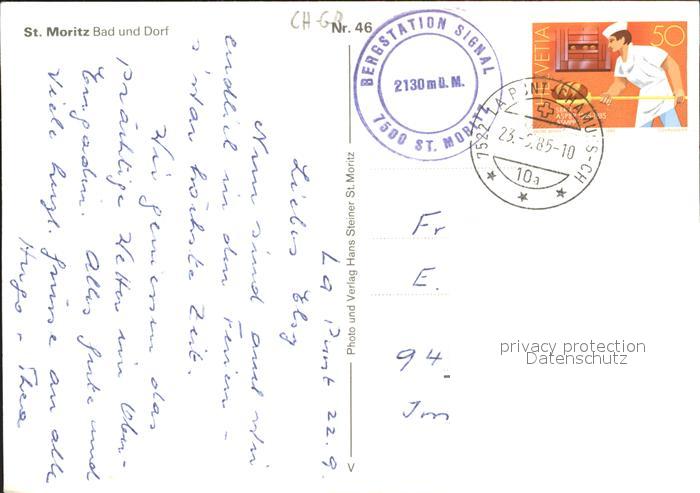 St. Moritz Bad und Dorf
CH-GR
Nr. 46
BERGSTATION SIGNAL
2130 m ü. M.
7500 ST. MORITZ
HELVETIA 50
7522 LA PUNT-CHAMUES-CH
23.-9.85-10
10a
La Punt 22. 9.
Liebes Elsy
Nun sind auch wir
endlich in den Ferien -
s'war höchste Zeit.
Wir geniessen das
prächtige Wetter im Ober-
Engadin. Alles Gute und
viele herzl. Grüsse an alle
Hugo + Thea
Photo und Verlag Hans Steiner St. Moritz
Fr
E.
94
privacy protection
Datenschutz